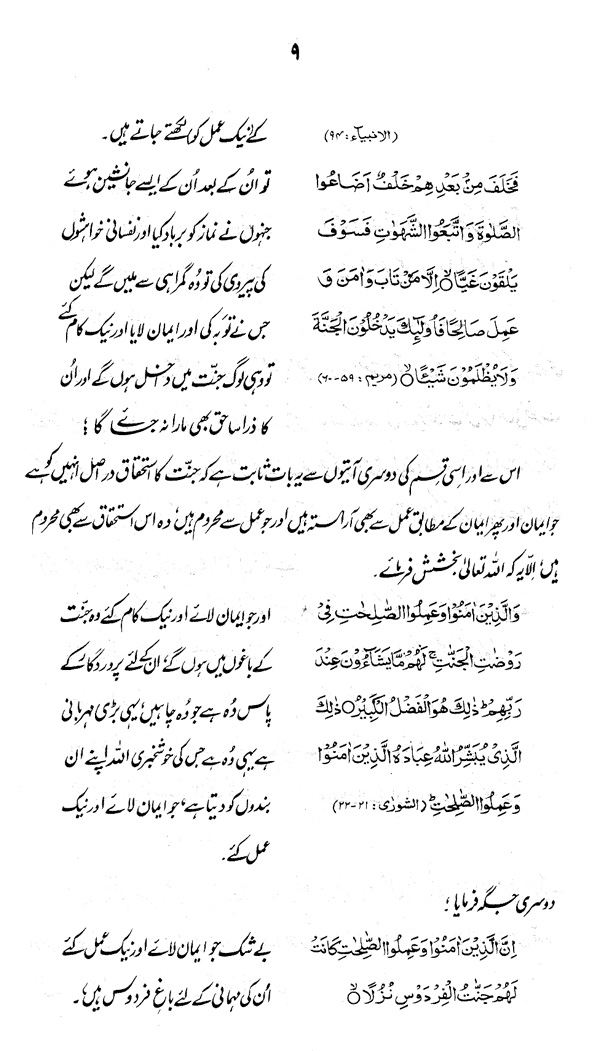 ۹
(الانبیآء: ۹۴) کے نیک عمل کو لکھتے جاتے ہیں۔
فَخَلَفَ مِنْۢ بَعْدِهِمْ خَلْفٌ اَضَاعُوا تو اُن کے بعد اُن کے ایسے جانشین ہوئے
الصَّلٰوةَ وَاتَّبَعُوا الشَّهَوٰتِ فَسَوْفَ جنہوں نے نماز کو برباد کیا اور نفسانی خواہشوں
يَلْقَوْنَ غَيًّا۝ اِلَّا مَنْ تَابَ وَاٰمَنَ وَ کی پیروی کی تو وُہ گمراہی سے ملیں گے لیکن
عَمِلَ صَالِحًا فَاُولٰٓئِكَ يَدْخُلُوْنَ الْجَنَّةَ جس نے توبہ کی اور ایمان لایا اور نیک کام کئے
وَلَا يُظْلَمُوْنَ شَيْئًا۝ (مریم: ۵۹-۶۰) تو وہی لوگ جنّت میں داخل ہوں گے اور اُن
کا ذرا سا حق بھی مارا نہ جائے گا؛
اس سے اور اسی قسم کی دوسری آیتوں سے یہ بات ثابت ہے کہ جنّت کا استحقاق دراصل انہیں کو ہے
جو ایمان اور پھر ایمان کے مطابق عمل سے بھی آراستہ ہیں اور جو عمل سے محروم ہیں، وہ اس استحقاق سے بھی محروم
ہیں، اِلّا یہ کہ اللہ تعالیٰ بخشش فرمائے۔
وَالَّذِيْنَ اٰمَنُوْا وَعَمِلُوا الصّٰلِحٰتِ فِيْ اور جو ایمان لائے اور نیک کام کئے وہ جنّت
رَوْضٰتِ الْجَنّٰتِ ۚ لَهُمْ مَّا يَشَآءُوْنَ عِنْدَ کے باغوں میں ہوں گے، ان کے لئے پروردگار کے
رَبِّهِمْ ؕ ذٰلِكَ هُوَ الْفَضْلُ الْكَبِيْرُ۝ ذٰلِكَ پاس وُہ ہے جو وُہ چاہیں، یہی بڑی مہربانی
الَّذِيْ يُبَشِّرُ اللّٰهُ عِبَادَهُ الَّذِيْنَ اٰمَنُوْا ہے یہی وُہ ہے جس کی خوشخبری اللہ اپنے ان
وَعَمِلُوا الصّٰلِحٰتِ ؕ (الشوریٰ: ۲۱-۲۲) بندوں کو دیتا ہے، جو ایمان لائے اور نیک
عمل کئے۔
دوسری جگہ فرمایا؛
اِنَّ الَّذِيْنَ اٰمَنُوْا وَعَمِلُوا الصّٰلِحٰتِ كَانَتْ بے شک جو ایمان لائے اور نیک عمل کئے
لَهُمْ جَنّٰتُ الْفِرْدَوْسِ نُزُلًا۝ اُن کی مہمانی کے لئے باغِ فردوس ہیں،۔